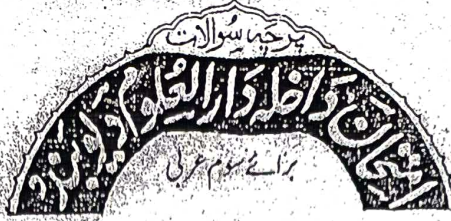 پرچہ سُوالات
امتحان داخلہ دارالعُلوم دیوبند
برائے سوم عربی